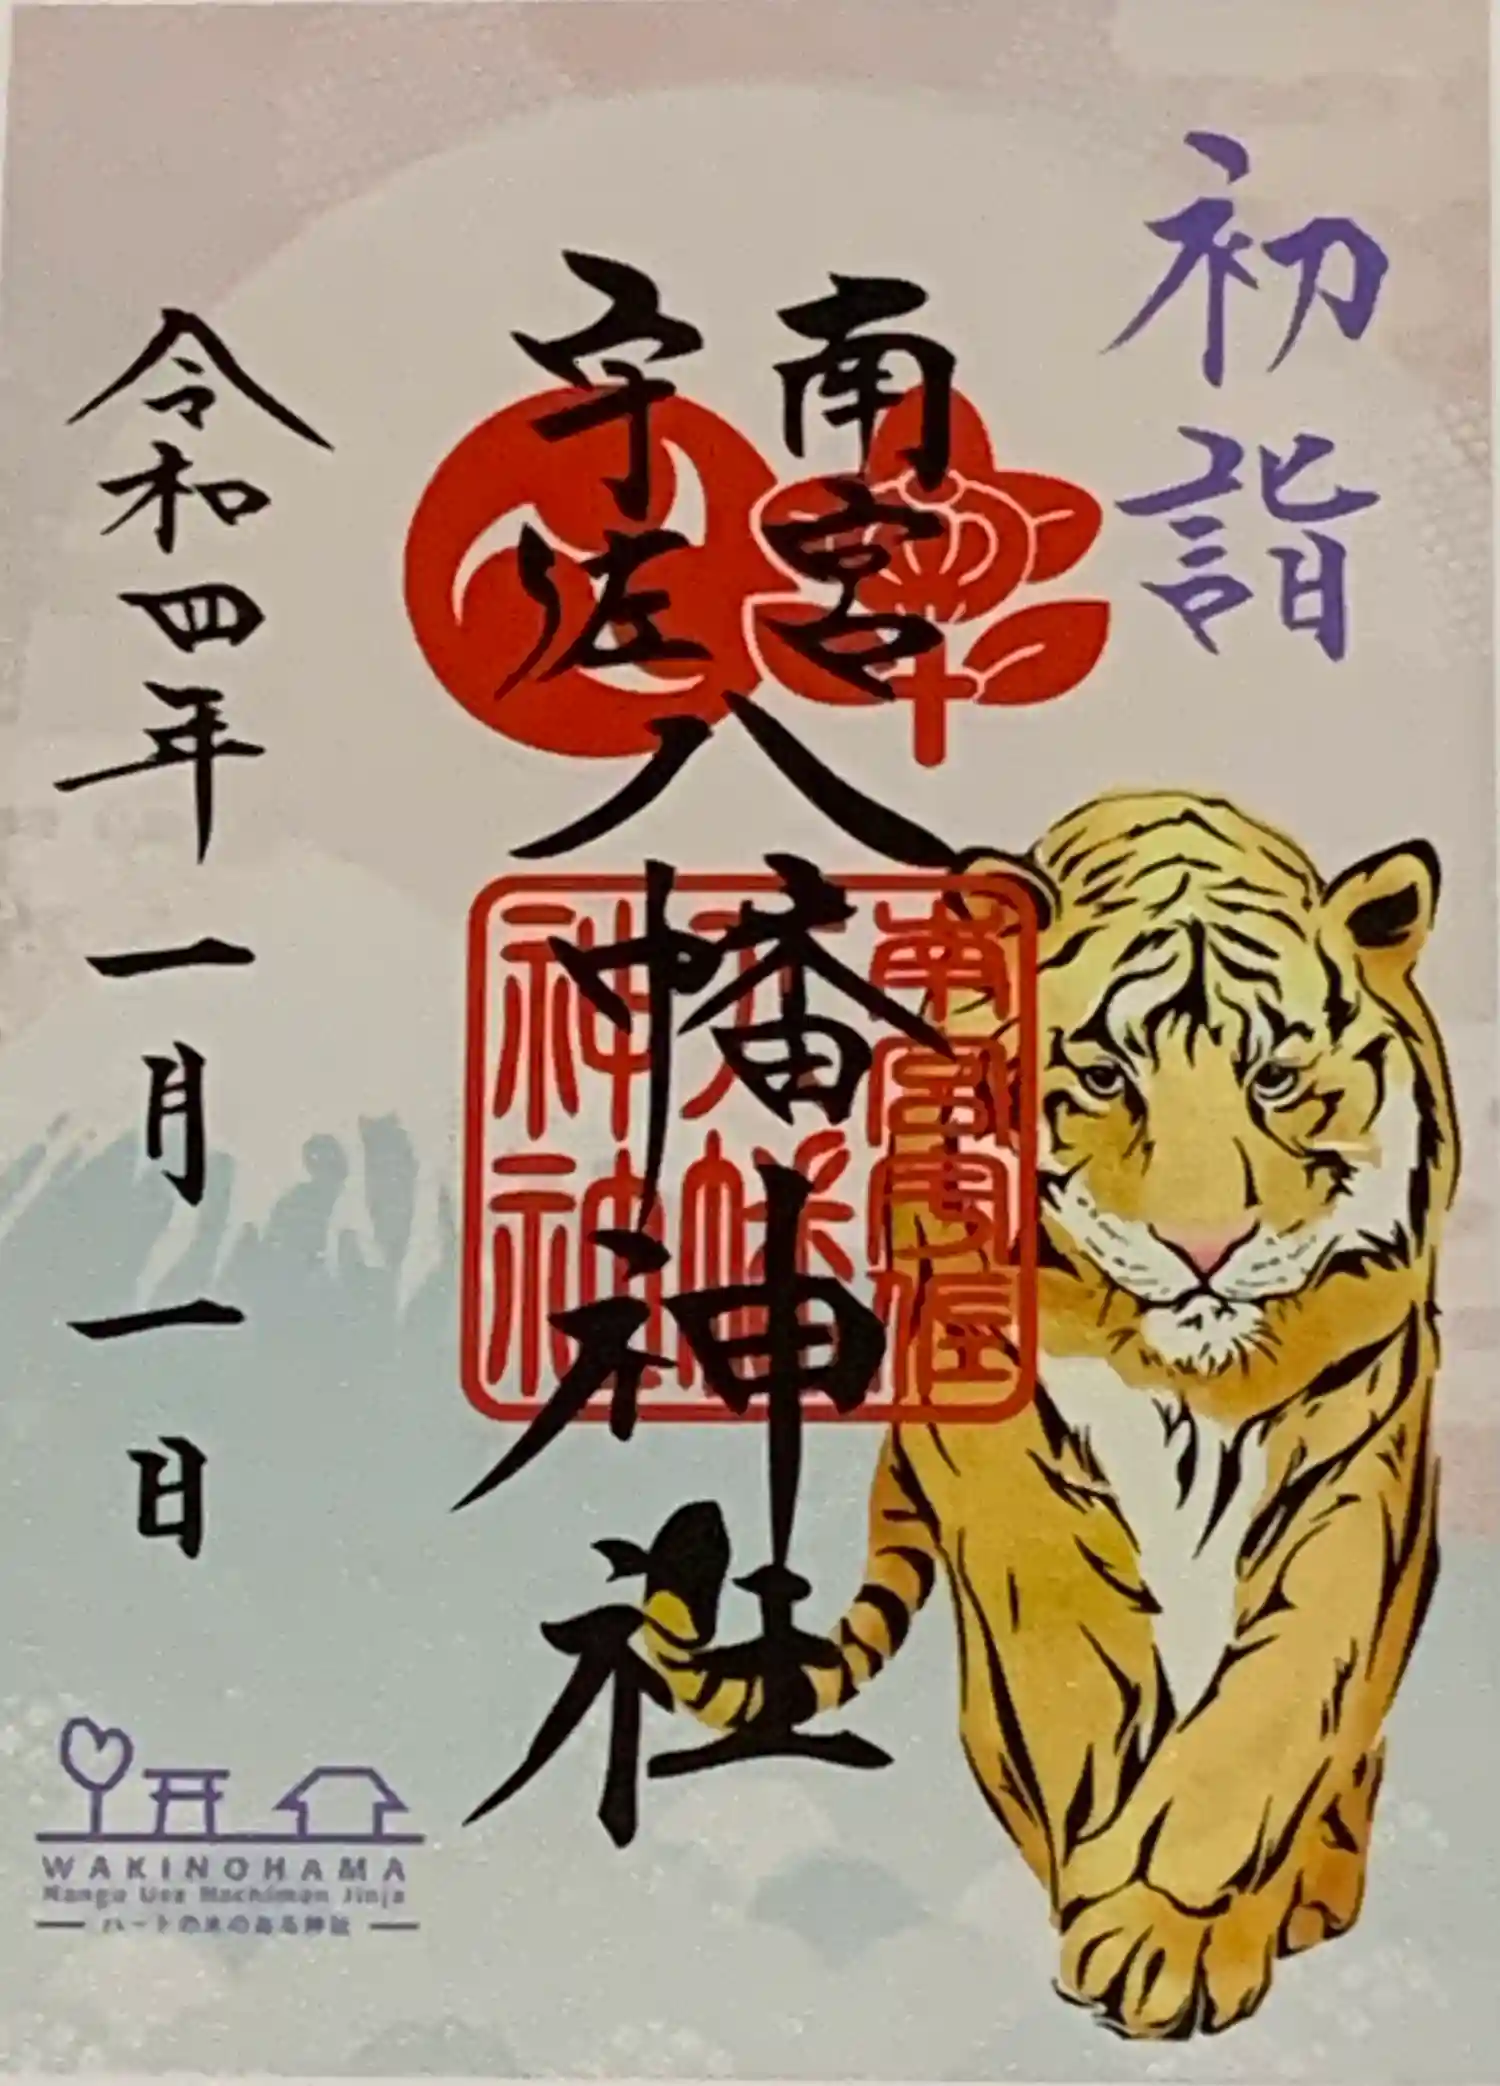 初詣
南宮
宇佐
八幡神社
南宮宇佐
八幡
神社
令和四年一月一日
WAKINOHAMA
Nangu Usa Hachiman Jinja
ハートの木のある神社